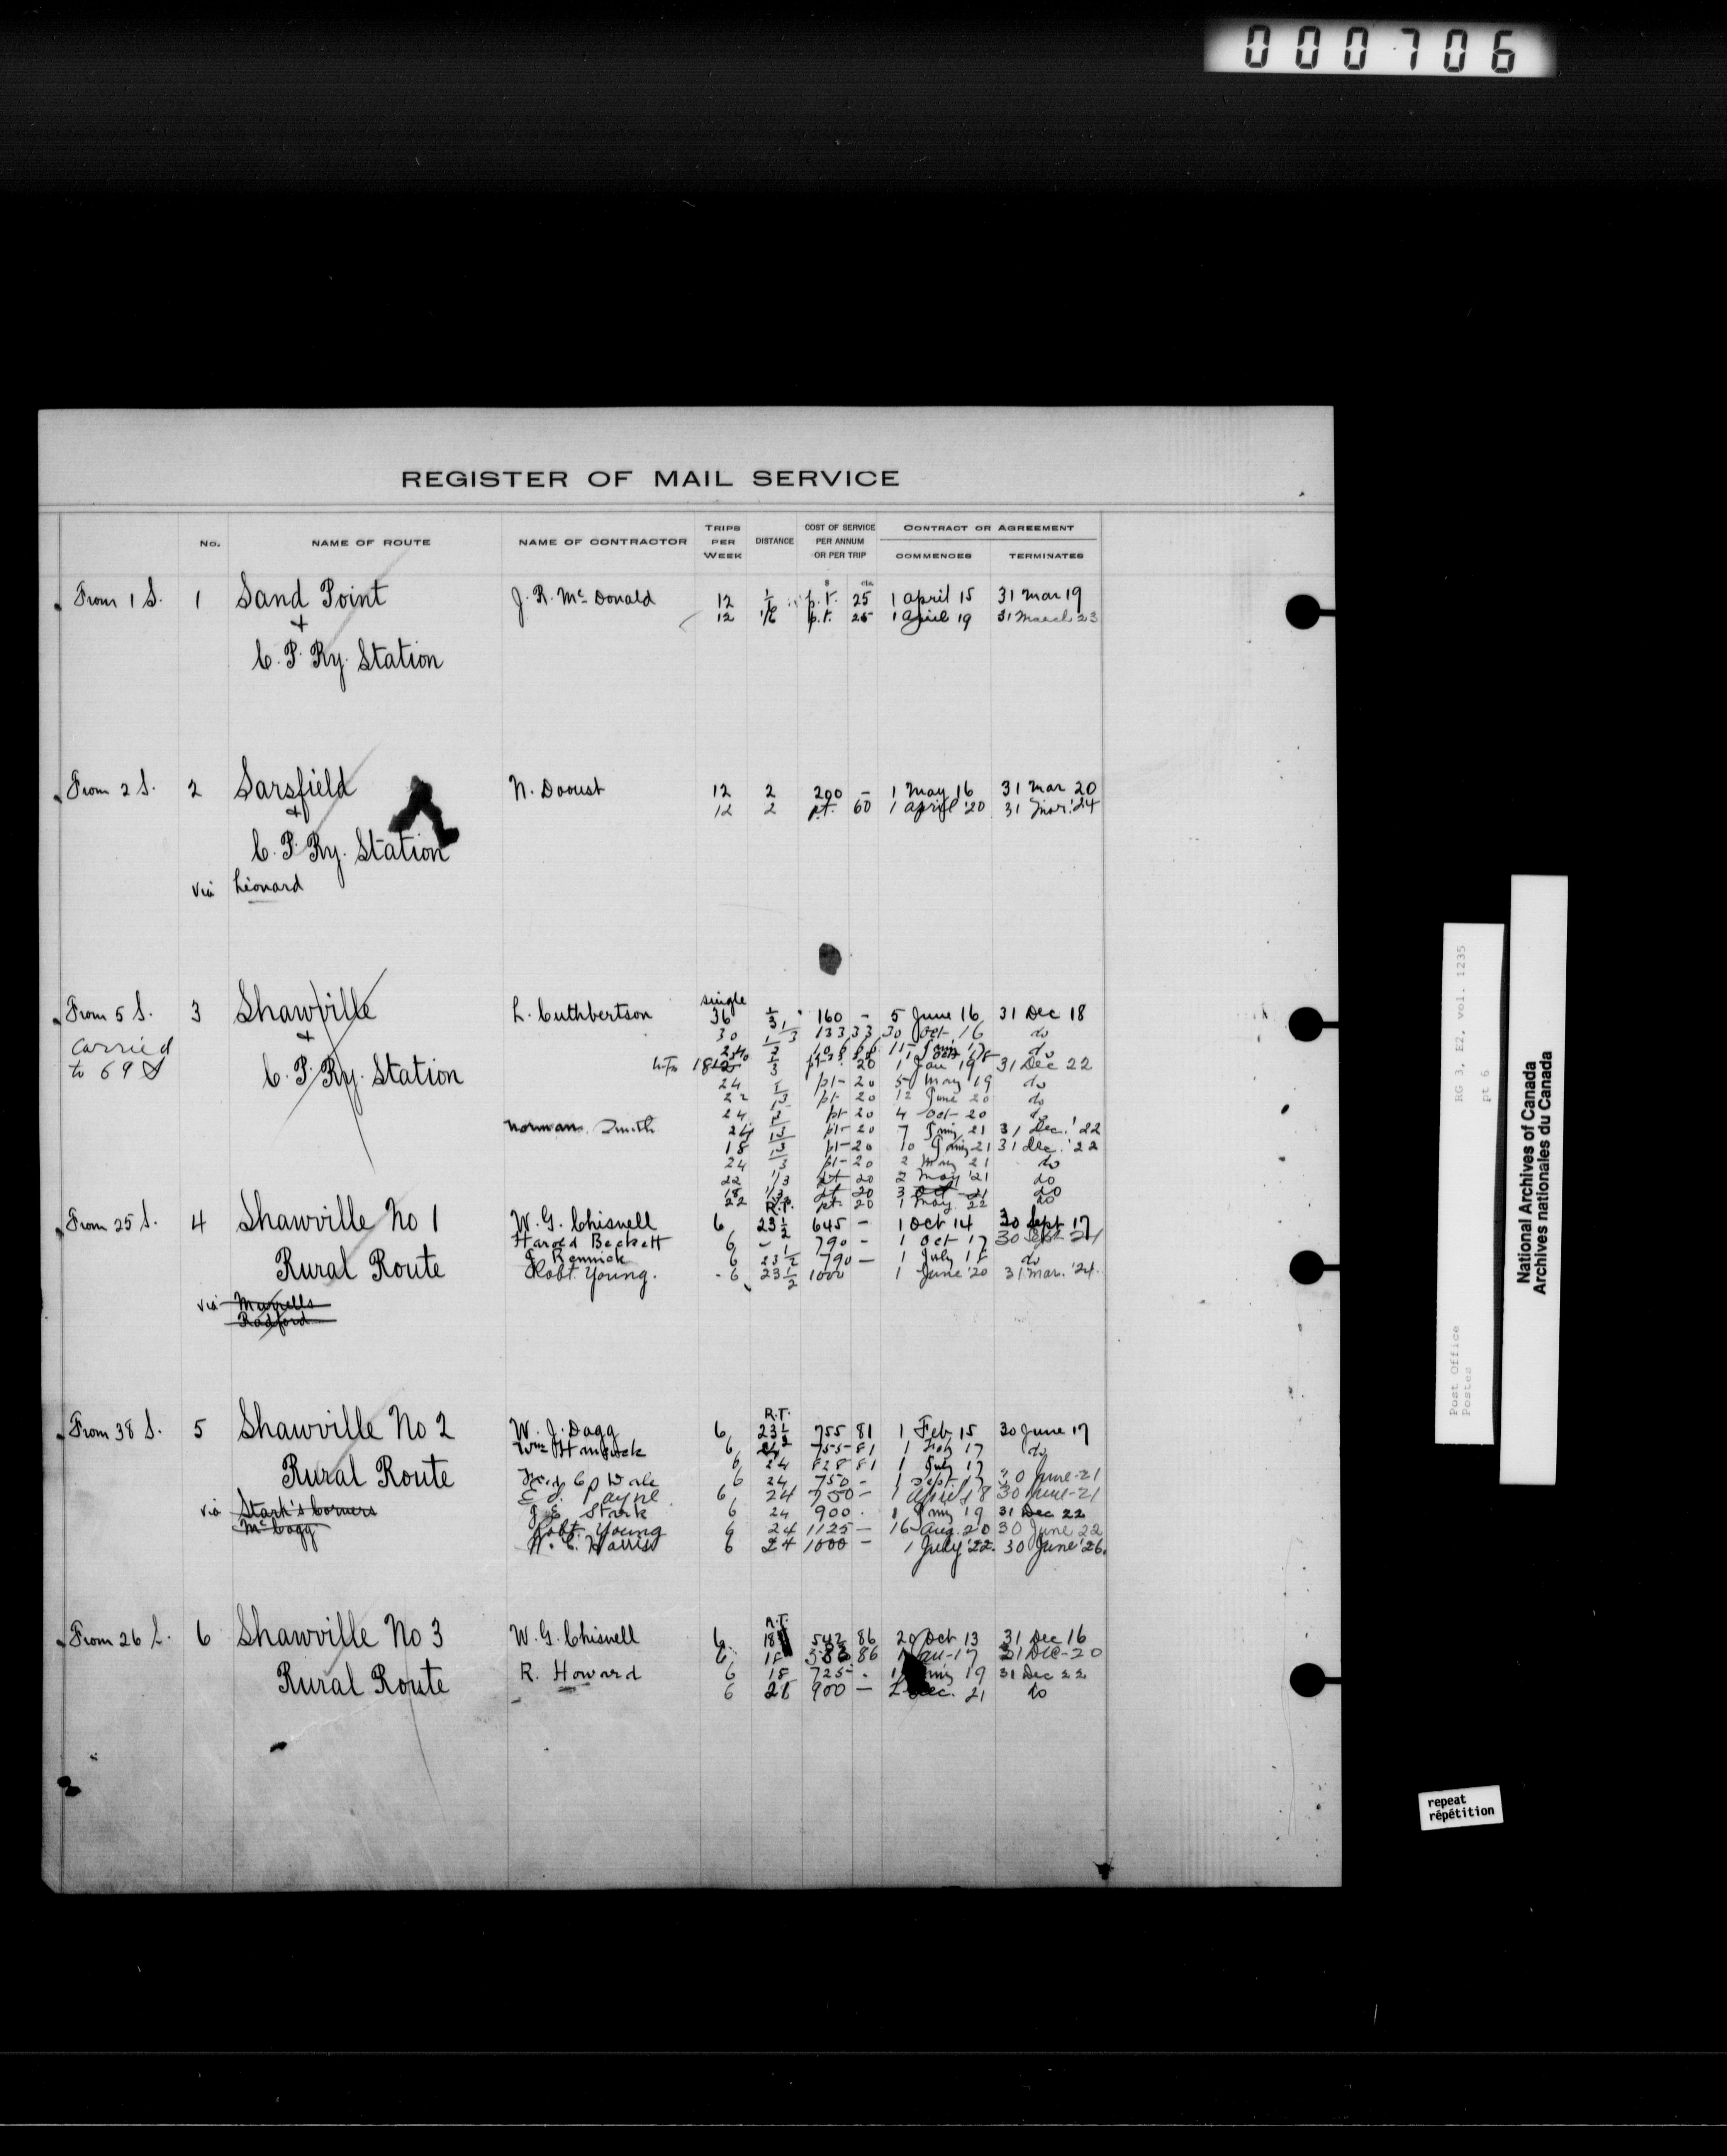 000706
REGISTER OF MAIL SERVICE
No. NAME OF ROUTE NAME OF CONTRACTOR TRIPS PER WEEK DISTANCE COST OF SERVICE PER ANNUM OR PER TRIP CONTRACT OR AGREEMENT COMMENCES TERMINATES
$ cts.
From 1 S. 1 Sand Point J. R. Mc Donald 12 p.t. 25 1 April 15 31 Mar 19
+ 12 1/6 p.t. 25 1 April 19 31 March 23
C. P. Ry. Station
From 2 S. 2 Sarsfield N. Doust 12 2 200 - 1 May 16 31 Mar 20
+ 12 2 pt. 60 1 April '20 31 Mar. '24
C. P. Ry. Station
via Leonard
single
From 5 S. 3 Shawville L. Cuthbertson 36 1/3 160 - 5 June 16 31 Dec 18
+ 30 1/3 133 33 30 Oct 16 do
carried
to 69 S C. P. Ry. Station 1/3 pt 20 1 Jan 19 31 Dec 22
24 pt 20 5 May 19 do
22 pt 20 12 June 20 do
24 pt 20 4 Oct 20 do
Norman Smith 24 1/3 pt 20 7 Jany 21 31 Dec. '22
18 1/3 pt 20 10 Jany 21 31 Dec. '22
24 1/3 pt 20 2 May 21 do
22 1/3 pt 20 2 May '21 do
18 1/3 pt 20 3 Oct 21 do
22 pt 20 1 May 22 do
R.T.
From 25 S. 4 Shawville No 1 W. G. Chisnell 6 23 1/2 645 - 1 Oct 14 30 Sept 17
Harold Beckett 6 790 - 1 Oct 17 30 Sept 21
Rural Route J. Rennick 6 23 1/2 790 - 1 July 18 do
Robt. Young. 6 23 1/2 1000 1 June '20 31 Mar. '24.
via Murrells
Radford
R.T.
From 38 S. 5 Shawville No 2 W. J. Dagg 6 23 1/2 755 81 1 Feb 15 30 June 17
Wm 6 755 81 1 Feb 17 do
6 24 828 81 1 July 17
Rural Route 6 24 750 - 1 Sept. 17 30 June-21
E. J. Payne 6 24 750 - 1 April 18 30 June-21
via Stark's Corners J. E. Stark 6 24 900 . 1 Jany 19 31 Dec 22
Robt. Young 6 24 1125 - 16 Aug. 20 30 June 22
H. C. Harris 6 24 1000 - 1 July '22. 30 June '26.
R.T.
From 26 S. 6 Shawville No 3 W. G. Chisnell 6 18 542 86 20 Oct 13 31 Dec 16
6 18 86 17 31 Dec-20
Rural Route R. Howard 6 18 725 - 19 31 Dec 22
6 900 - Dec. 21 do
RG 3, E2, vol. 1235
pt 6
Post Office
Postes
National Archives of Canada
Archives nationales du Canada
repeat
répétition